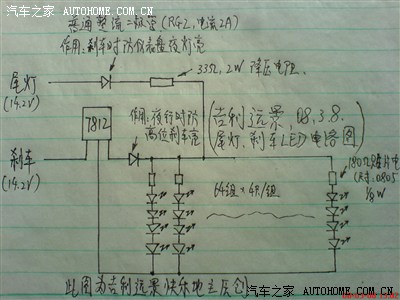 汽车之家 AUTOHOME.COM.CN
普通整流二极管(RG2,电流2A)
作用:刹车时防仪表盘夜灯亮
33Ω,2W 降压电阻.
尾灯
(14.2V)
7812
作用:夜行时防
高位刹车亮
吉利远景,08.3.8.
(尾灯、刹车LED电路图)
刹车
(14.2V)
180Ω贴片电
0805
1/8W
64组×4只/组
此图为吉利远景快乐地主原创
汽车之家 AUTOHOME.COM.CN